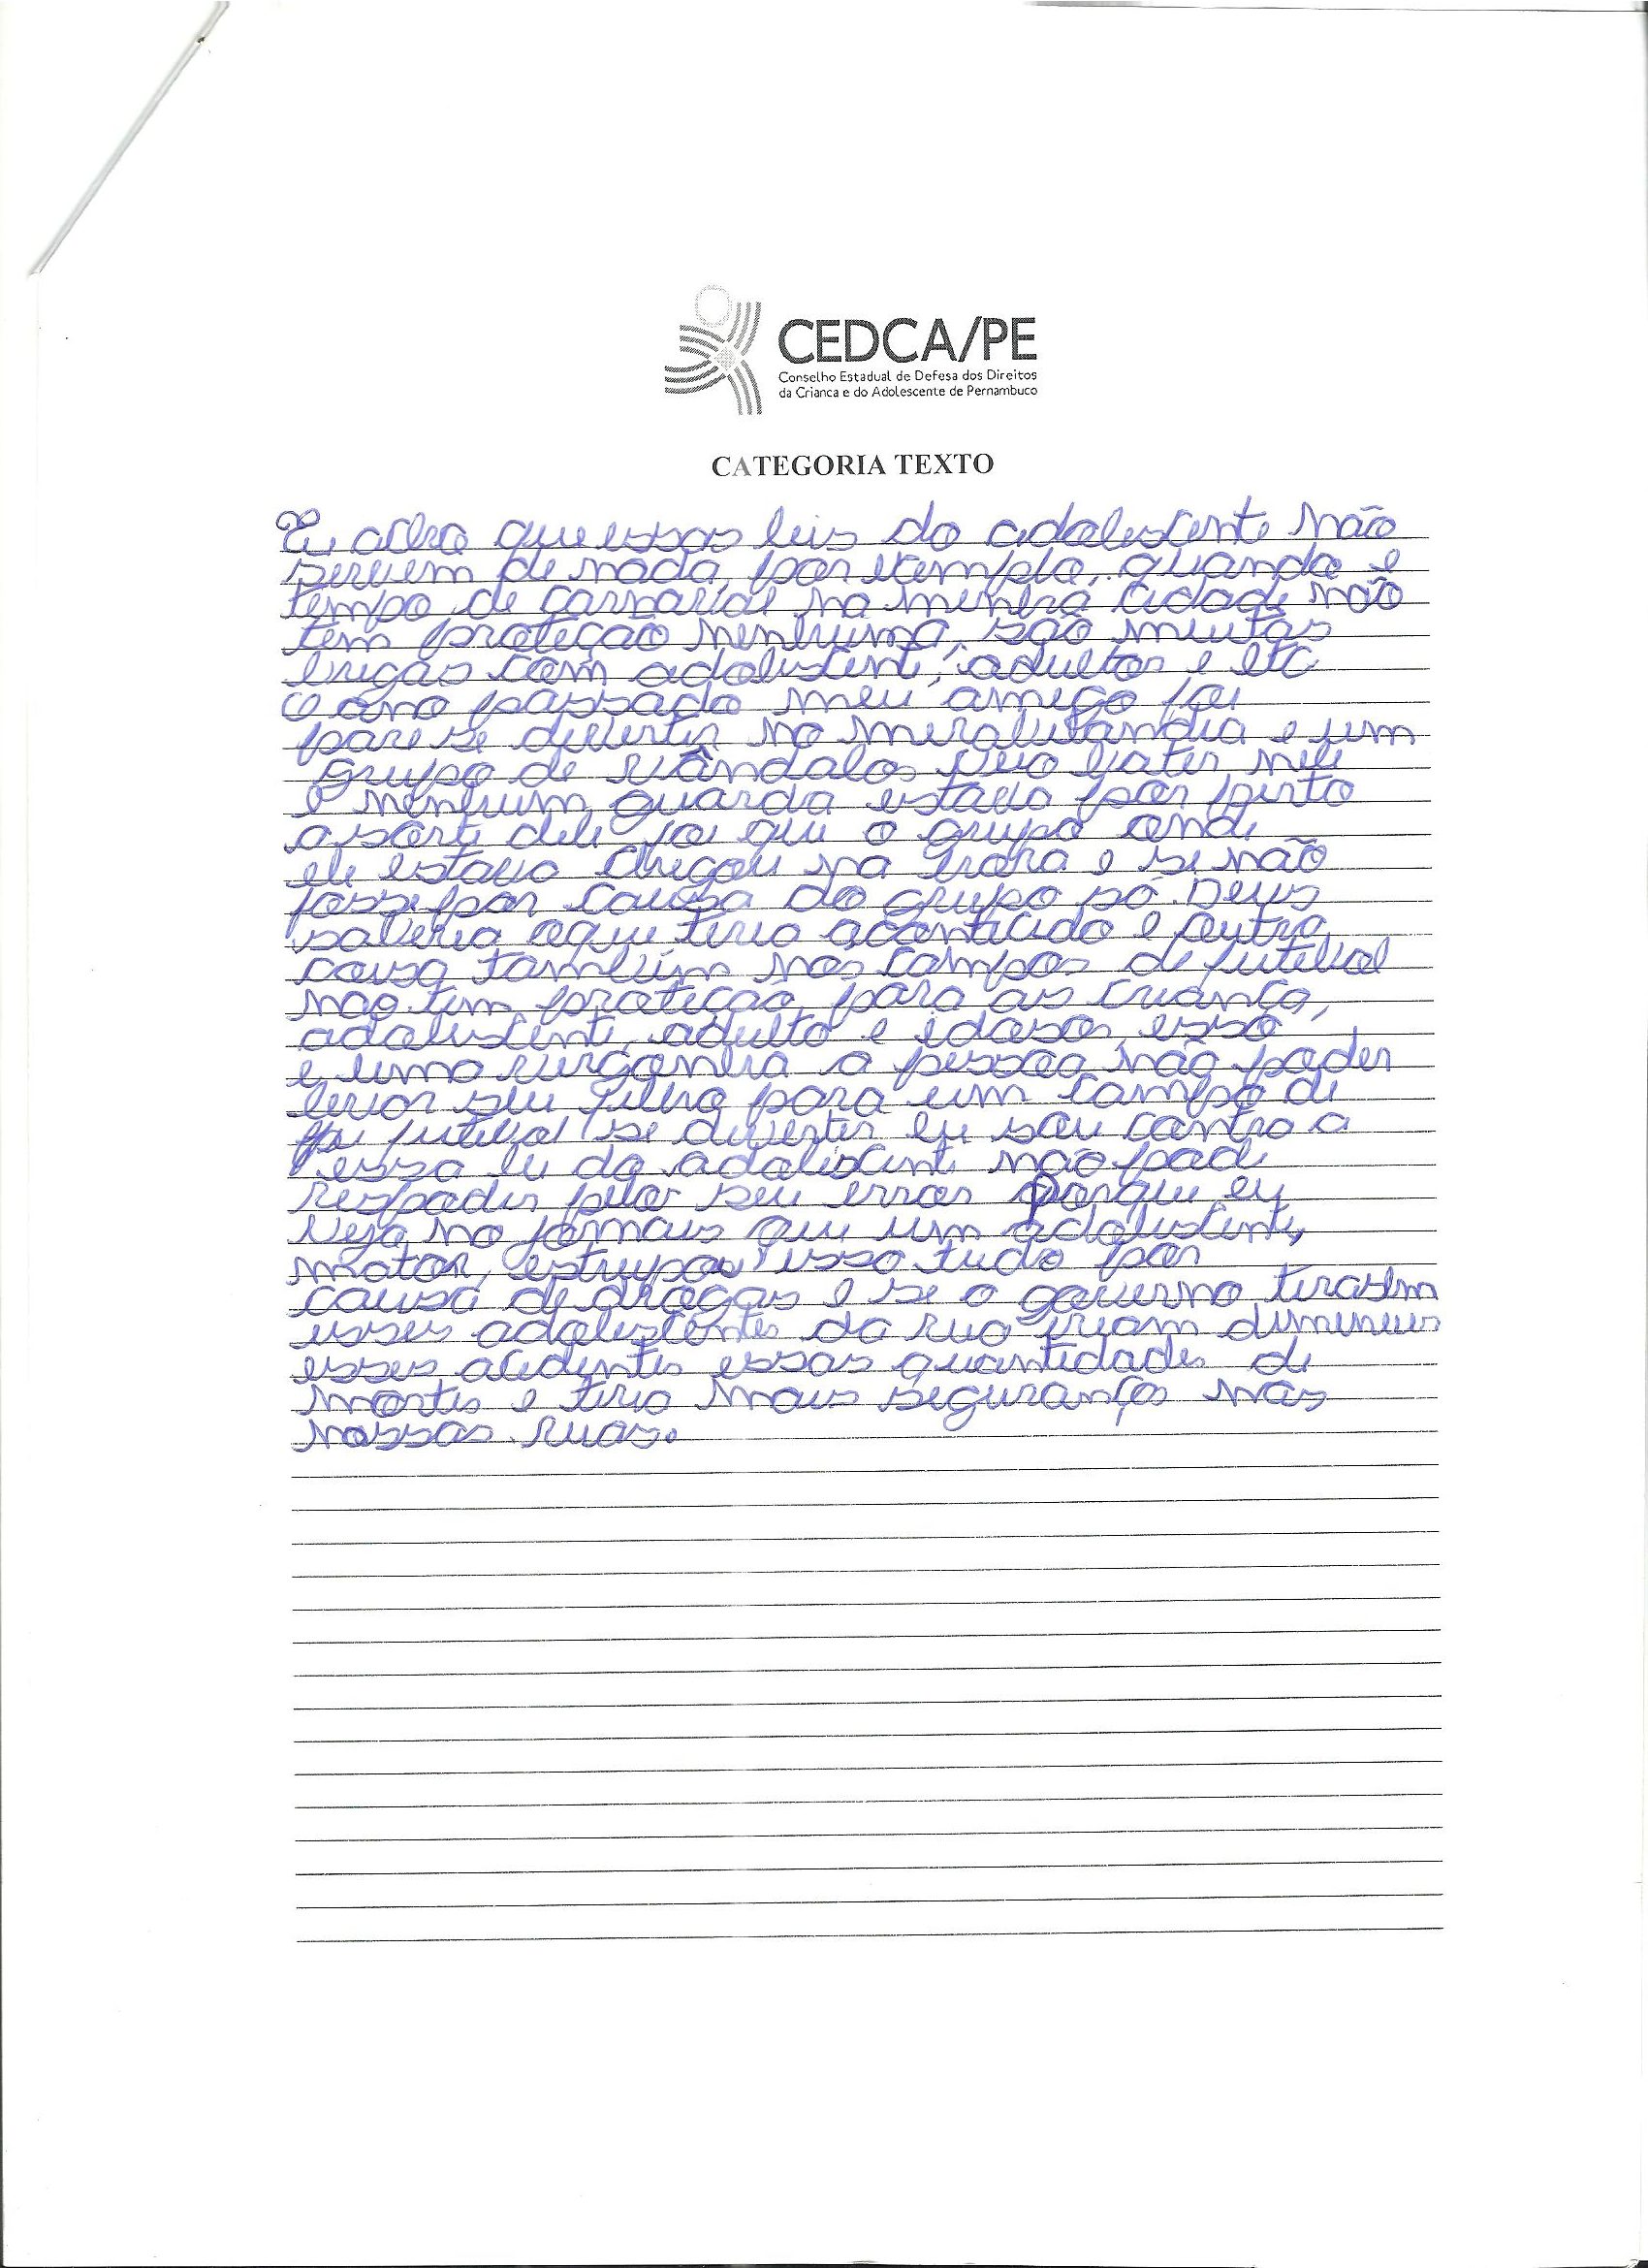 CEDCA/PE
Conselho Estadual de Defesa dos Direitos
da Crianca e do Adolescente de Pernambuco
CATEGORIA TEXTO
Eu acho que essas leis do adolescente não
servem de nada, por exemplo, quando é
tempo de carnaval na minha cidade não
tem proteção nenhuma, são muitas
brigas com adolescente, adultos e etc
O ano passado meu amigo foi
para se divertir no e um
grupo de vândalos veio bater nele
e nenhum guarda estava por perto
a sorte dele foi que o grupo onde
ele estava chegou na hora e se não
fosse por causa do grupo só Deus
saberia oque teria acontecido e outra
coisa também nos campos de futebol
não tem proteção para as criança,
adolescente, adulto e idosos, isso
é uma a pessoa não poder
levar seu filho para um campo de
futebol se divertir eu sou contra a
essa lei do adolescente não pode
respoder pelos seu erros Porque eu
vejo no jornais que um adolescente,
matar, estrupou isso tudo por
causa de drogas e se o governo tirasem
esses adolescentes da rua iriam
esses acidentes essas quantidades de
mortes e teria mais segurança nas
nossas ruas.